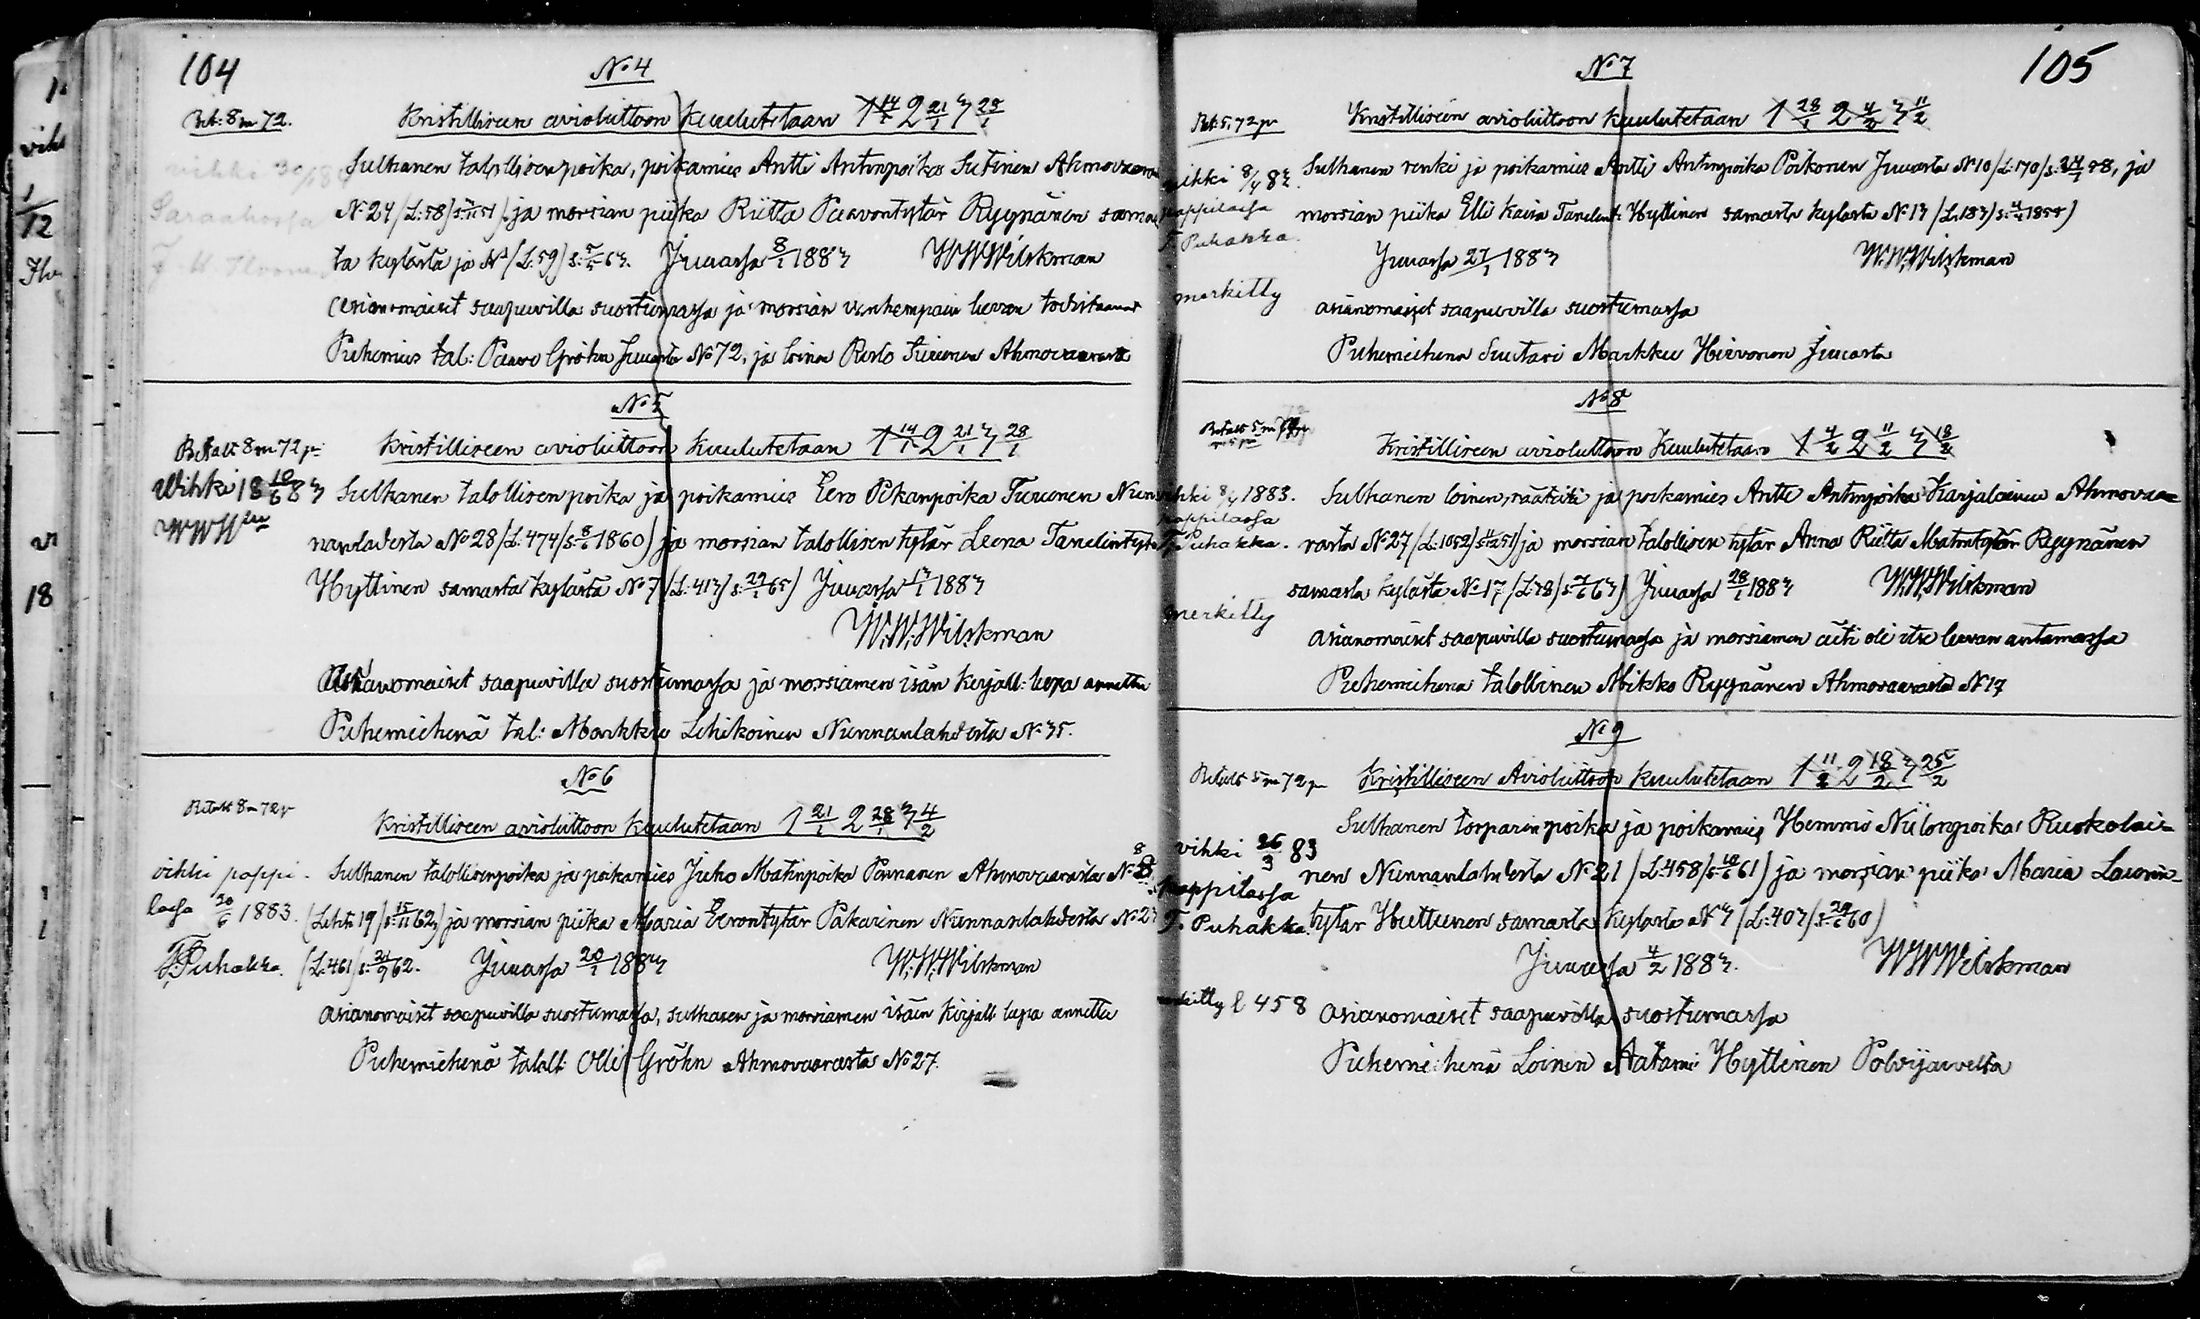 104
No 4
Bet: 8 m 72.
Kristilliseen avioliittoon kuulutetaan 1 14/1 2 21/1 3 28/1
Sulhanen talollisen poika, poikamies Antti Antinpoika Sutinen Ahmovaaras
No 24 /L:58/ ja morsian piika Riitta Paavontytär Ryynänen samas
ta kylästä ja No (L:59) Juuassa 8/1 1883 W.W.Wilskman
Asianomaiset saapuvilla suostumassa ja morsian vanhempain luvan todistaanut
Puhemies tal: Paavo Gröhn Juuasta No 72, ja loinen Risto Turunen Ahmovaarasta
No 5
Betalt 8 m 72 p
Kristilliseen avioliittoon kuulutetaan 1 14/1 2 21/1 3 28/1
Wihki 18 10/6 83
WWWan
Sulhanen talollisen poika ja poikamies Eero Pekanpoika Turunen Nun
nanlahdesta No 28 /L:474/ s: 8/6 1860) ja morsian talollisen tytär Leena Tanelintytär
Hyttinen samasta kylästä No 7 (L:413) s: 29/1 65) Juuassa 13/1 1883
W.W.Wilskman
Asianomaiset saapuvilla suostumassa ja morsiamen isän kirjall: lupa annettu
Puhemiehenä tal: Markku Lehikoinen Nunnanlahdesta No 35.
No 6
Betalt 8 m 72 p
Kristilliseen avioliittoon kuulutetaan 1 21/1 2 28/1 3 4/2
vihki pappi-
lassa 20/6 1883.
F. Puhakka.
Sulhanen talollisenpoika ja poikamies Juho Matinpoika Pannanen Ahmovaarasta No 8
(Lehti 19) s: 15/11 62) ja morsian piika Maria Eerontytär Pakarinen Nunnanlahdesta No 23
(L:461) s: 21/9 62. Juuassa 20/1 1883 W.W.Wilskman
Asianomaiset saapuvilla suostumassa, sulhasen ja morsiamen isäin kirjall lupa annettu
Puhemiehenä talall: Olli Gröhn Ahmovaarasta No 27.
105
No 7
Bet: 5, 72 p
Kristilliseen avioliittoon kuulutetaan 1 28/1 2 4/2 3 11/2
vihki 8/4 83.
pappilassa
F. Puhakka.
merkitty
Sulhanen renki ja poikamies Antti Antinpoika Poikonen Juuasta No 10 /L:170/ s: 24/1 58, ja
morsian piika Elli Kaisa Tanelint: Hyttinen samasta kylästä No 13 /L:183/ s: 4/4 1855)
Juuassa 27/1 1883 W.W.Wilskman
asianomaiset saapuvilla suostumassa
Puhemiehenä Suutari Markku Hirvonen Juuasta
No 8
Betalt 5 m
Kristilliseen avioliittoon Kuulutetaan 1 4/2 2 11/2 3 18/2
vihki 8/4 1883.
pappilassa
F. Puhakka.
merkitty
Sulhanen loinen, räätäli ja poikamies Antti Antinpoika Karjalainen Ahmovaa-
rasta No 27 /L:1052/ ja morsian talollisen tytär Anna Riitta Matintytär Ryynänen
samasta kylästä No 17 /L:28/ Juuassa 28/1 1883 W.W.Wilskman
asianomaiset saapuvilla suostumassa ja morsiamen äiti oli itse luvan antamassa
Puhemiehenä talollinen Mikko Ryynänen Ahmovaarasta No 17
No 9
Betalt 5 m 72 p
Kristilliseen Avioliittoon kuulutetaan 1 11/2 2 18/2 3 25/2
vihki 26/3 83
pappilassa
F. Puhakka.
merkitty l 458
Sulhanen torparin poika ja poikamies Hemmo Niilonpoika Ruokolai-
nen Nunnanlahdesta No 21 /L:458/ s: 10/6 61) ja morsian piika Maria Laurin-
tytär Huttunen samasta kylästä No 3 /L:403/ s: 29/6 60)
Juuassa 4/2 1883. W.W.Wilskman
Asianomaiset saapuvilla suostumassa
Puhemiehenä Loinen Aatami Hyttinen Polvijärveltä